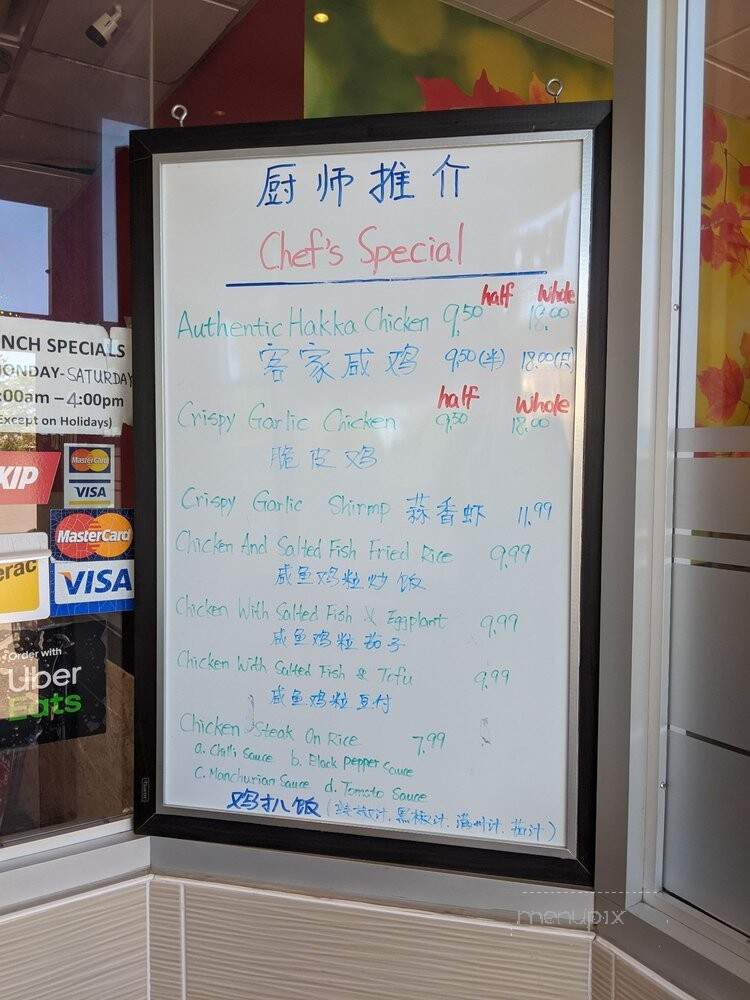 厨师推介
Chef's Special
half whole
Authentic Hakka Chicken 9.50 18.00
客家咸鸡 9.50(半) 18.00(只)
half whole
Crispy Garlic Chicken 9.50 18.00
脆皮鸡
Crispy Garlic Shirmp 蒜香虾 11.99
Chicken And Salted Fish Fried Rice 9.99
咸鱼鸡粒炒饭
Chicken With Salted Fish & Eggplant 9.99
咸鱼鸡粒茄子
Chicken With Salted Fish & Tofu 9.99
咸鱼鸡粒豆付
Chicken Steak On Rice 7.99
a. Chilli Sauce b. Black Pepper Sauce
c. Manchurian Sauce d. Tomato Sauce
鸡扒饭 (辣椒汁. 黑椒汁. 满州汁. 茄汁)
NCH SPECIALS
MONDAY-SATURDAY
:00am – 4:00pm
Except on Holidays)
KIP
MasterCard
VISA
MasterCard
VISA
erac
Order with
Uber
Eats
menupix